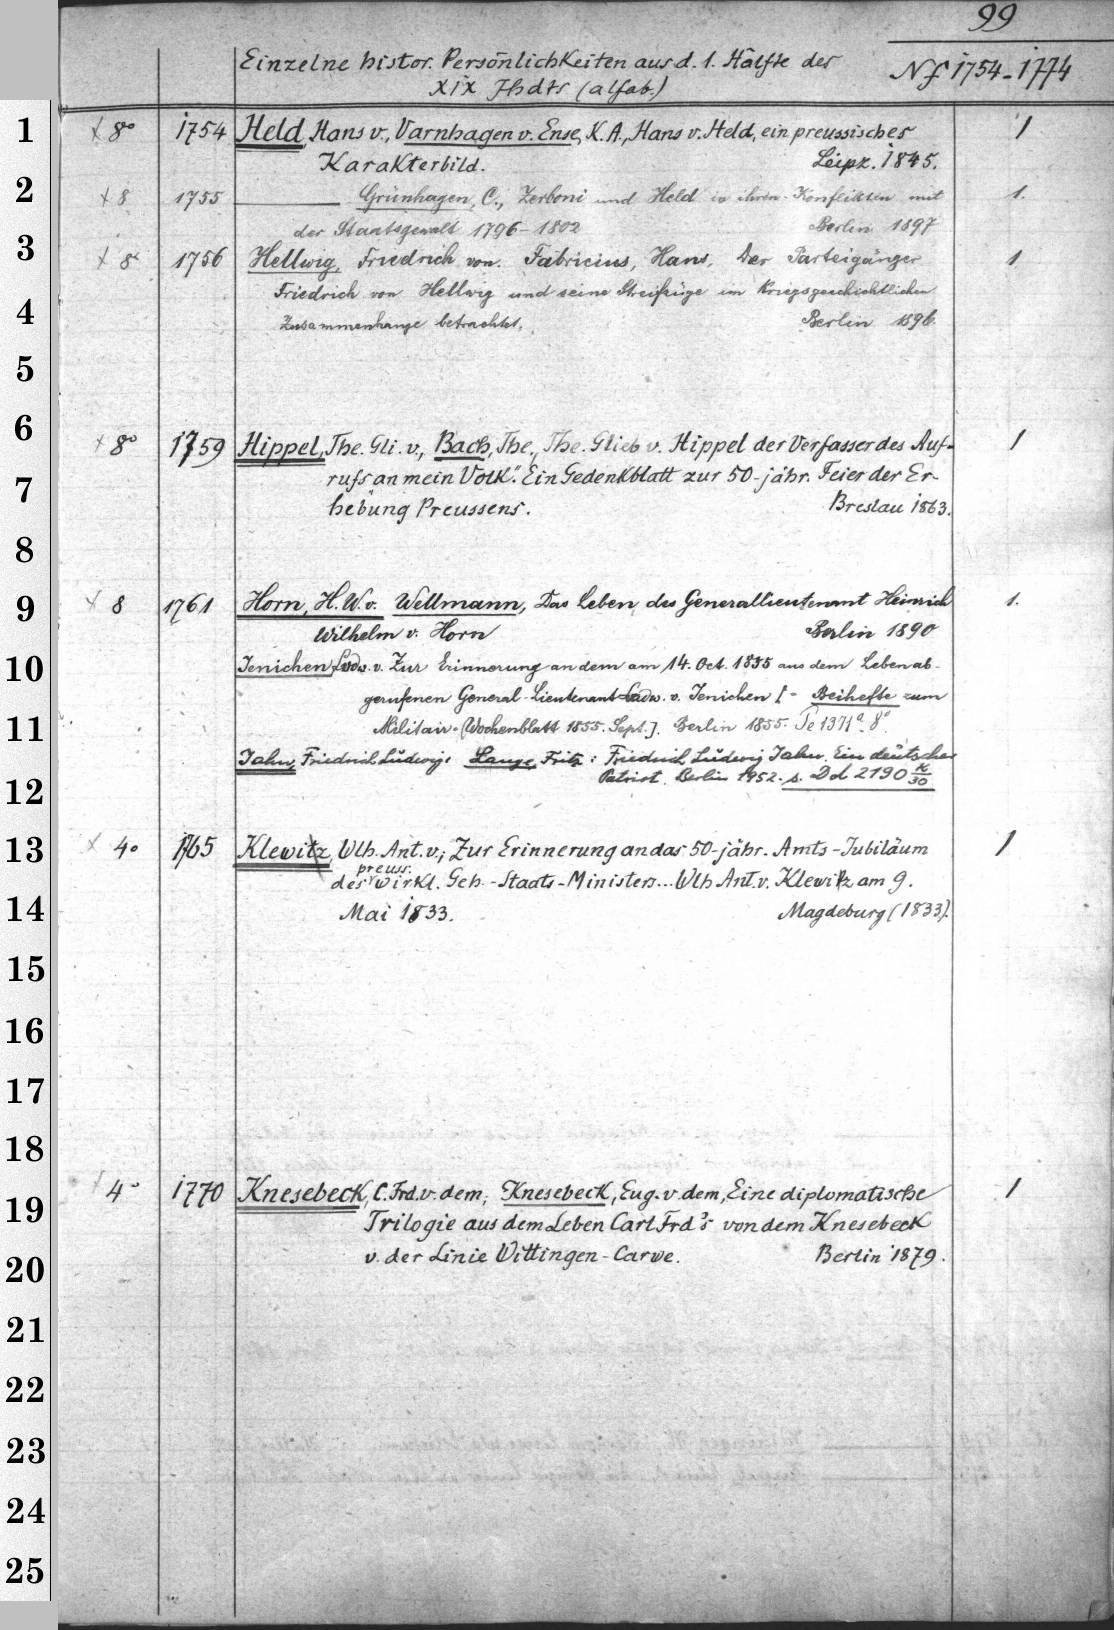 99
Einzelne histor. Persönlichkeiten aus d. 1. Hälfte des
XIX Jhdts (alfab.)
Nf 1754-1774
1 x 8° 1754 Held, Hans v., Varnhagen v. Ense, K. A., Hans v. Held, ein preussisches 1
Karakterbild. Leipz. 1845.
2 x 8 1755 ——— Grünhagen, C., Zerboni und Held in ihren Konflikten mit 1.
der Staatsgewalt 1796-1802 Berlin 1897
3 x 8° 1756 Hellwig, Friedrich von. Fabricius, Hans, Der Parteigänger 1
Friedrich von Hellwig und seine Streifzüge im kriegsgeschichtlichen
4 Zusammenhange betrachtet. Berlin 1896.
5
6 x 8° 1759 Hippel, The. Gli. v., Bach, The., The. Glieb v. Hippel der Verfasser des Auf- 1
7 rufs an mein Volk". Ein Gedenkblatt zur 50-jähr. Feier der Er-
hebung Preussens. Breslau 1863.
8
9 x 8 1761 Horn, H. W. v. Wellmann, Das Leben des Generallieutenant Heinrich 1.
Wilhelm v. Horn Berlin 1890
10 Jenichen Ludw. v. Zur Erinnerung an dem am 14. Oct. 1835 aus dem Leben ab-
gerufenen General-Lieutenant Ludw. v. Jenichen [- Beihefte zum
11 Militair-(Wochenblatt 1855. Sept.]. Berlin 1855. Te 1371ª. 8°.
Jahn, Friedrich Ludwig: Lange, Fritz: Friedrich Ludwig Jahn. Ein deutscher
12 Patriot. Berlin 1952. s. Dd 2190 K/30
13 x 4° 1765 Klewitz, Wlh. Ant. v.; Zur Erinnerung an das 50-jähr. Amts-Jubiläum 1
preuss.
des wirkl. Geh.-Staats-Ministers... Wlh Ant. v. Klewitz am 9.
14 Mai 1833. Magdeburg (1833).
15
16
17
18
19 4° 1770 Knesebeck, C. Frd. v. dem; Knesebeck, Eug. v. dem, Eine diplomatische 1
Trilogie aus dem Leben Carl Frd's von dem Knesebeck
20 v. der Linie Wittingen-Carwe. Berlin 1879.
21
22
23
24
25